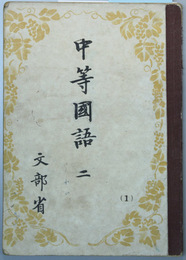 中等國語 二
(1)
文部省